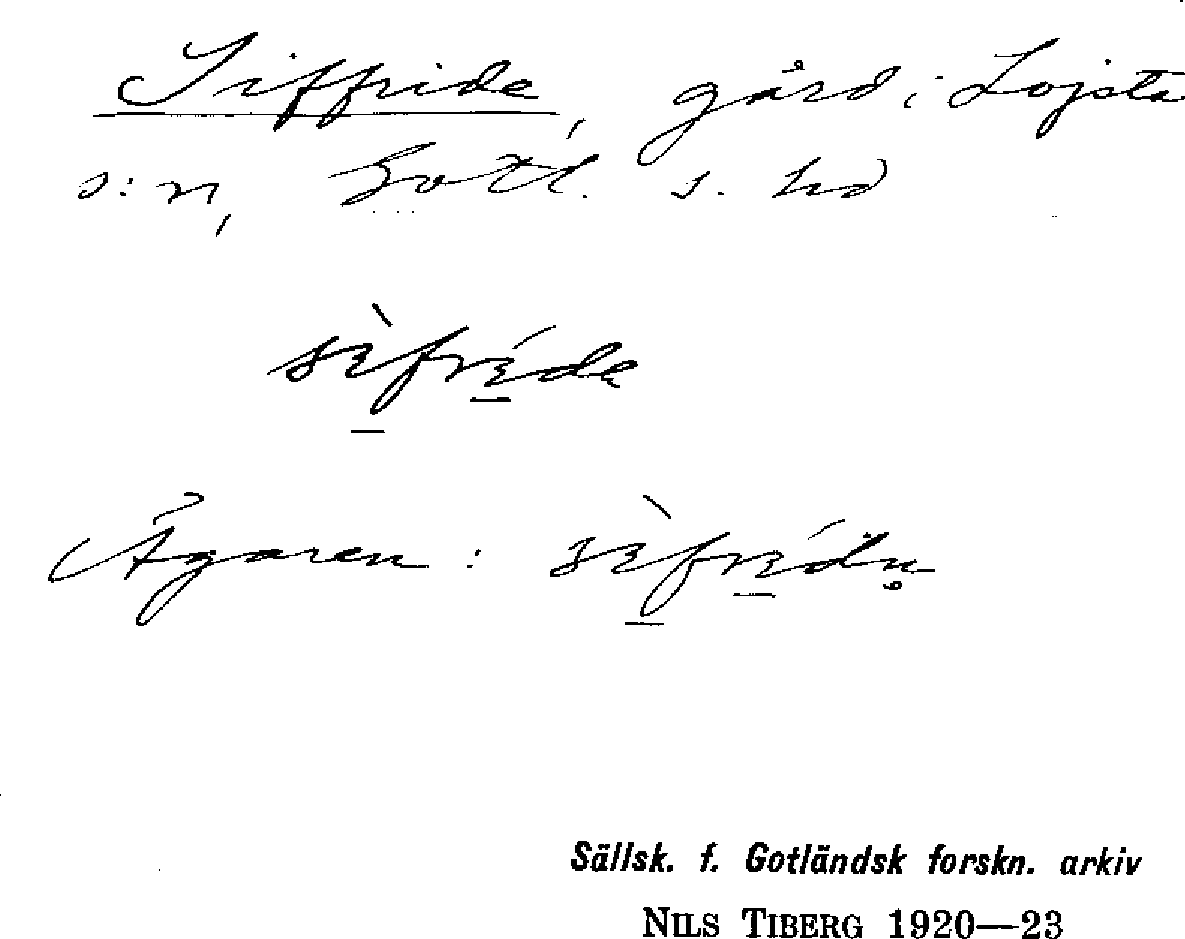 Siffride, gård i Lojsta
s:n, Gotl. s. hd
sìfríde
Ägaren: sìfrídu
Sällsk. f. Gotländsk forskn. arkiv
NILS TIBERG 1920—23